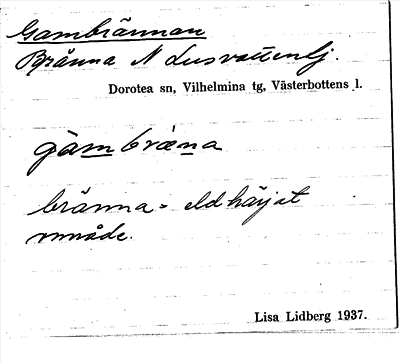 Gambrännan
Bränna N Lusvattenlj.
Dorotea sn, Vilhelmina tg, Västerbottens l.
gàmbræ̀na
bränna = eldhärjat
område.
Lisa Lidberg 1937.